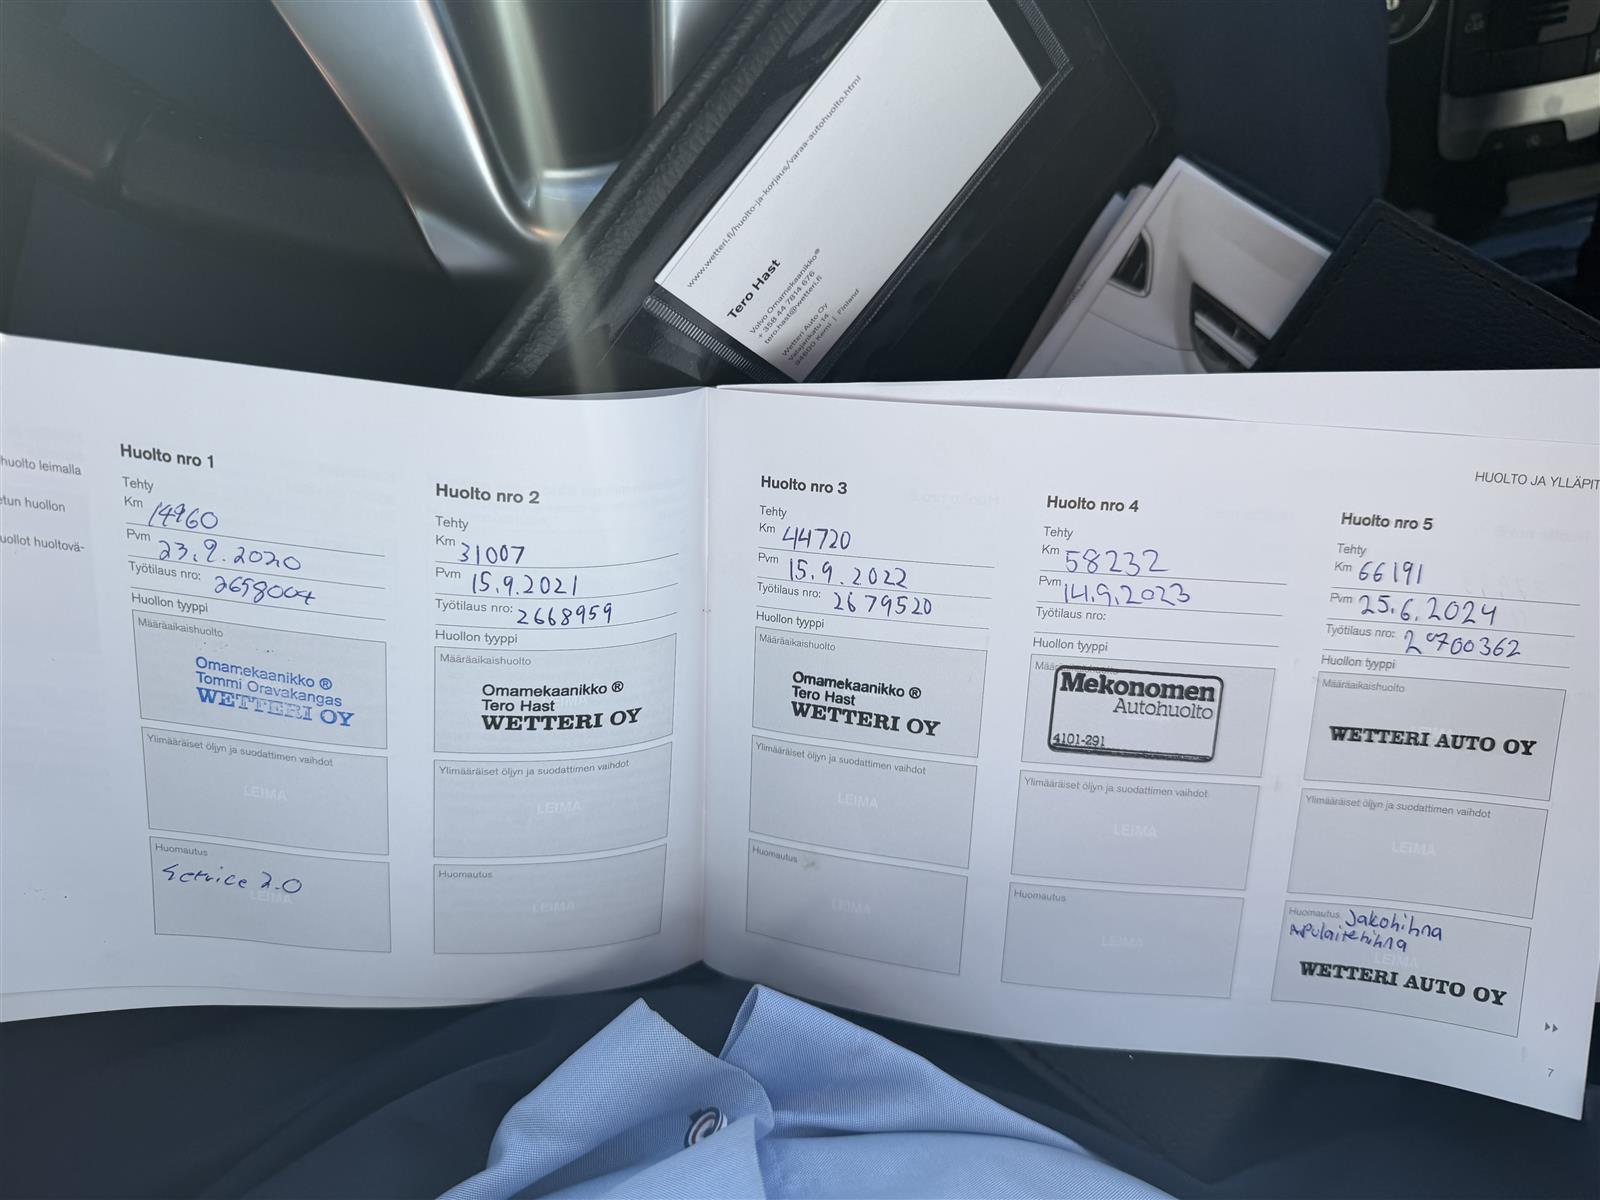 www.wetteri.fi/huolto-ja-korjaus/varaa-autohuolto.html
Tero Hast
Volvo Omamekaanikko®
+ 358 44 7814 676
tero.hast@wetteri.fi
Wetteri Auto Oy
Valajankatu 14
94600 Kemi | Finland
huolto leimalla
etun huollon
uollot huoltovä-
Huolto nro 1
Tehty
Km 14960
Pvm 23.9.2020
Työtilaus nro: 2658004
Huollon tyyppi
Määräaikaishuolto
Omamekaanikko ®
Tommi Oravakangas
WETTERI OY
Ylimääräiset öljyn ja suodattimen vaihdot
LEIMA
Huomautus
Service 2.0
LEIMA
Huolto nro 2
Tehty
Km 31007
Pvm 15.9.2021
Työtilaus nro: 2668959
Huollon tyyppi
Määräaikaishuolto
Omamekaanikko ®
Tero Hast
WETTERI OY
Ylimääräiset öljyn ja suodattimen vaihdot
LEIMA
Huomautus
LEIMA
HUOLTO JA YLLÄPIT
Huolto nro 3
Tehty
Km 44720
Pvm 15.9.2022
Työtilaus nro: 2679520
Huollon tyyppi
Määräaikaishuolto
Omamekaanikko ®
Tero Hast
WETTERI OY
Ylimääräiset öljyn ja suodattimen vaihdot
LEIMA
Huomautus
LEIMA
Huolto nro 4
Tehty
Km 58232
Pvm 14.9.2023
Työtilaus nro:
Huollon tyyppi
Mekonomen
Autohuolto
4101-291
Ylimääräiset öljyn ja suodattimen vaihdot
LEIMA
Huomautus
LEIMA
Huolto nro 5
Tehty
Km 66191
Pvm 25.6.2024
Työtilaus nro: 20700362
Huollon tyyppi
Määräaikaishuolto
WETTERI AUTO OY
Ylimääräiset öljyn ja suodattimen vaihdot
LEIMA
Huomautus Jakohihna
Apulaitehihna
LEIMA
WETTERI AUTO OY
7